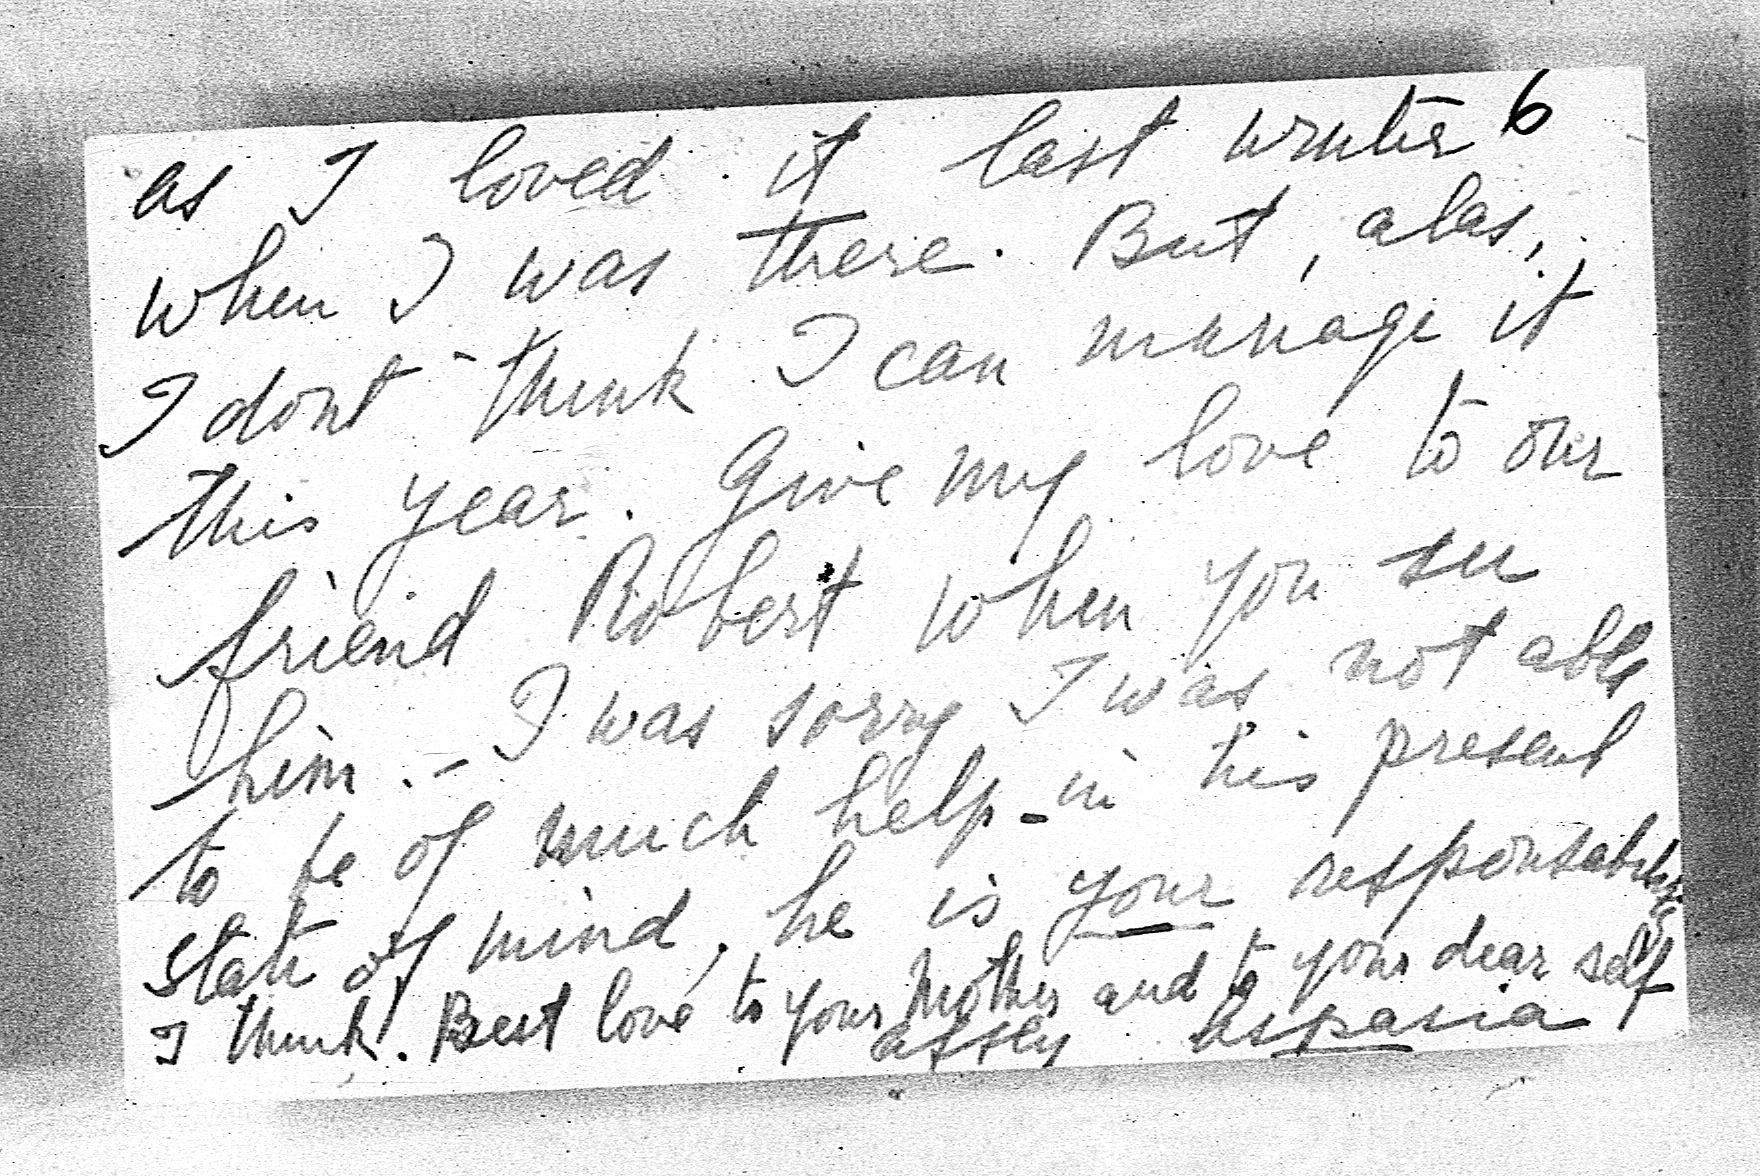 as I loved it last winter 6
when I was there. But, alas,
I dont think I can manage it
this year. Give my love to our
friend Robert when you see
him. - I was sorry I was not able
to be of much help - in his present
state of mind, he is your responsability
I think. Best love to your Mother and to your dear self
affly Aspasia